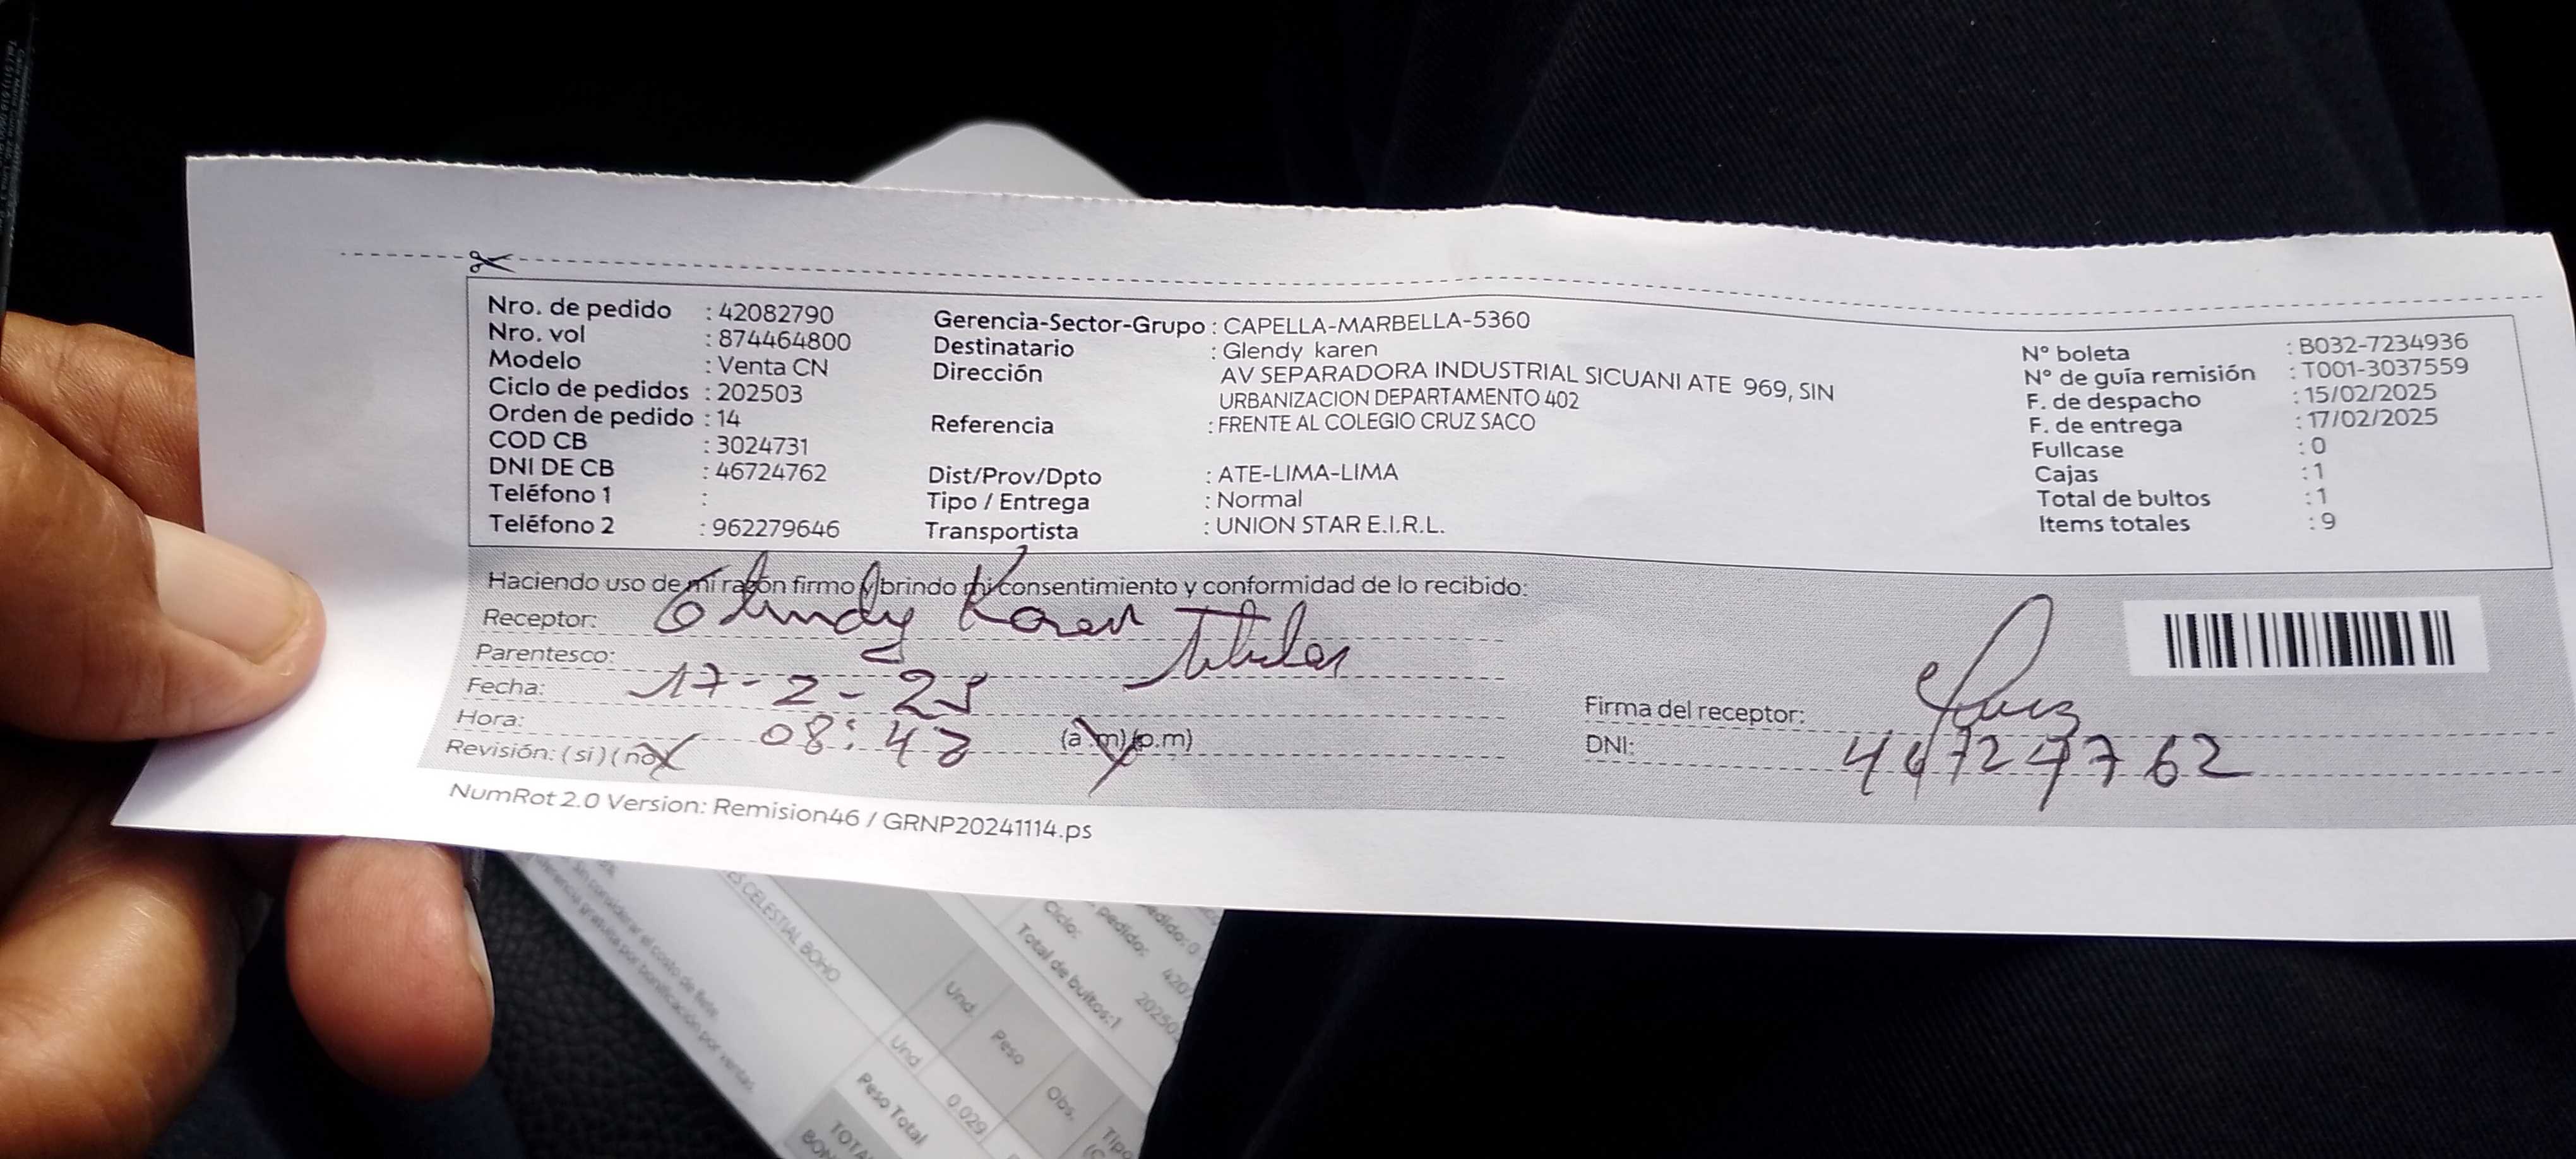 Nro. de pedido : 42082790
Nro. vol : 874464800
Modelo : Venta CN
Ciclo de pedidos : 202503
Orden de pedido : 14
COD CB : 3024731
DNI DE CB : 46724762
Teléfono 1 :
Teléfono 2 : 962279646
Gerencia-Sector-Grupo : CAPELLA-MARBELLA-5360
Destinatario : Glendy karen
Dirección : AV SEPARADORA INDUSTRIAL SICUANI ATE 969, SIN
URBANIZACION DEPARTAMENTO 402
Referencia : FRENTE AL COLEGIO CRUZ SACO
Dist/Prov/Dpto : ATE-LIMA-LIMA
Tipo / Entrega : Normal
Transportista : UNION STAR E.I.R.L.
N° boleta : B032-7234936
N° de guía remisión : T001-3037559
F. de despacho : 15/02/2025
F. de entrega : 17/02/2025
Fullcase : 0
Cajas : 1
Total de bultos : 1
Items totales : 9
Haciendo uso de mi razón firmo y brindo mi consentimiento y conformidad de lo recibido:
Receptor: Glendy Karen
Parentesco: titular
Fecha: 17-2-25
Hora: 08:48 (a.m) (p.m)
Revisión: (si) (no)
Firma del receptor:
DNI: 46724762
NumRot 2.0 Version: Remision46 / GRNP20241114.ps
CELESTIAL BOHO
Sin considerar el costo de flete.
gratuita por bonificación por ventas
Und
Peso
Obs.
Und
0.029
Peso Total
pedido: 0
pedido:
Ciclo:
Total de bultos:1